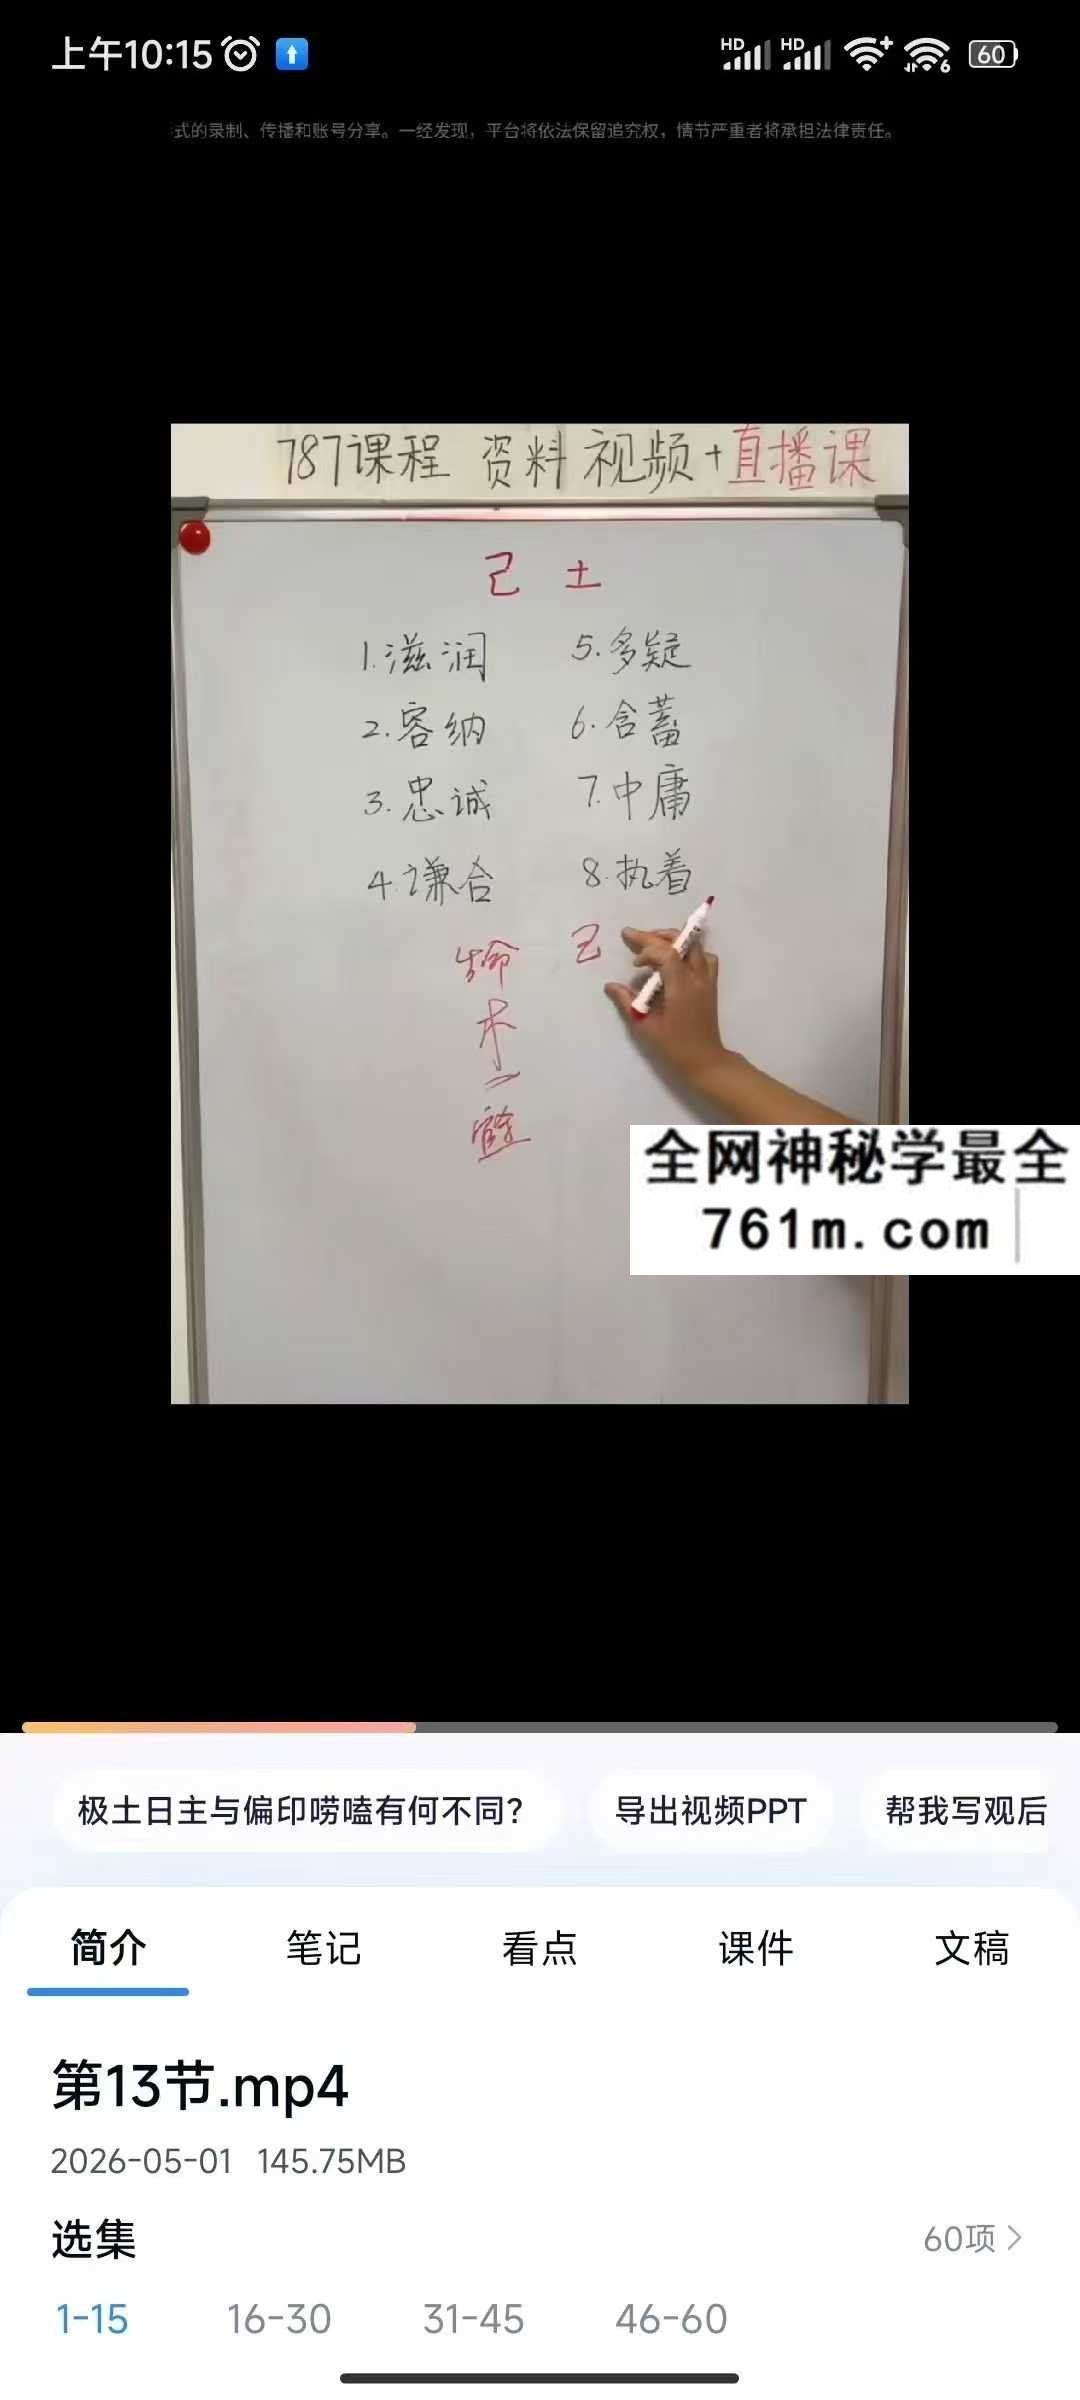 上午10:15
HD HD 6 60
式的录制、传播和账号分享。一经发现，平台将依法保留追究权，情节严重者将承担法律责任。
787课程 资料 视频+直播课
己 土
1.滋润 5.多疑
2.容纳 6.含蓄
3.忠诚 7.中庸
4.谦合 8.执着
命 己
木
全网神秘学最全
761m.com
极土日主与偏印唠嗑有何不同？
导出视频PPT
帮我写观后
简介 笔记 看点 课件 文稿
第13节.mp4
2026-05-01 145.75MB
选集 60项
1-15 16-30 31-45 46-60